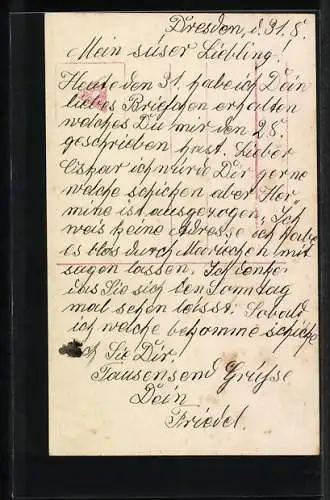 Dresden, d. 31. 8.
Mein süser Liebling!
Heute den 31. habe ich Dein
liebes Briefchen erhalten
welches Du mir den 28.
geschrieben hast. Lieber
Oskar ich würde Dir gerne
welche schicken aber Her
mine ist ausgezogen, Ich
weis keine Adresse ich Habe
es blos durch Mariechen mit
sagen lassen. Ich denke
das Sie sich den Sonntag
mal sehen lässt. Sobald
ich welche bekomme schicke
ich Sie Dir.
Tausensend Grüsse
Dein
Friedel.